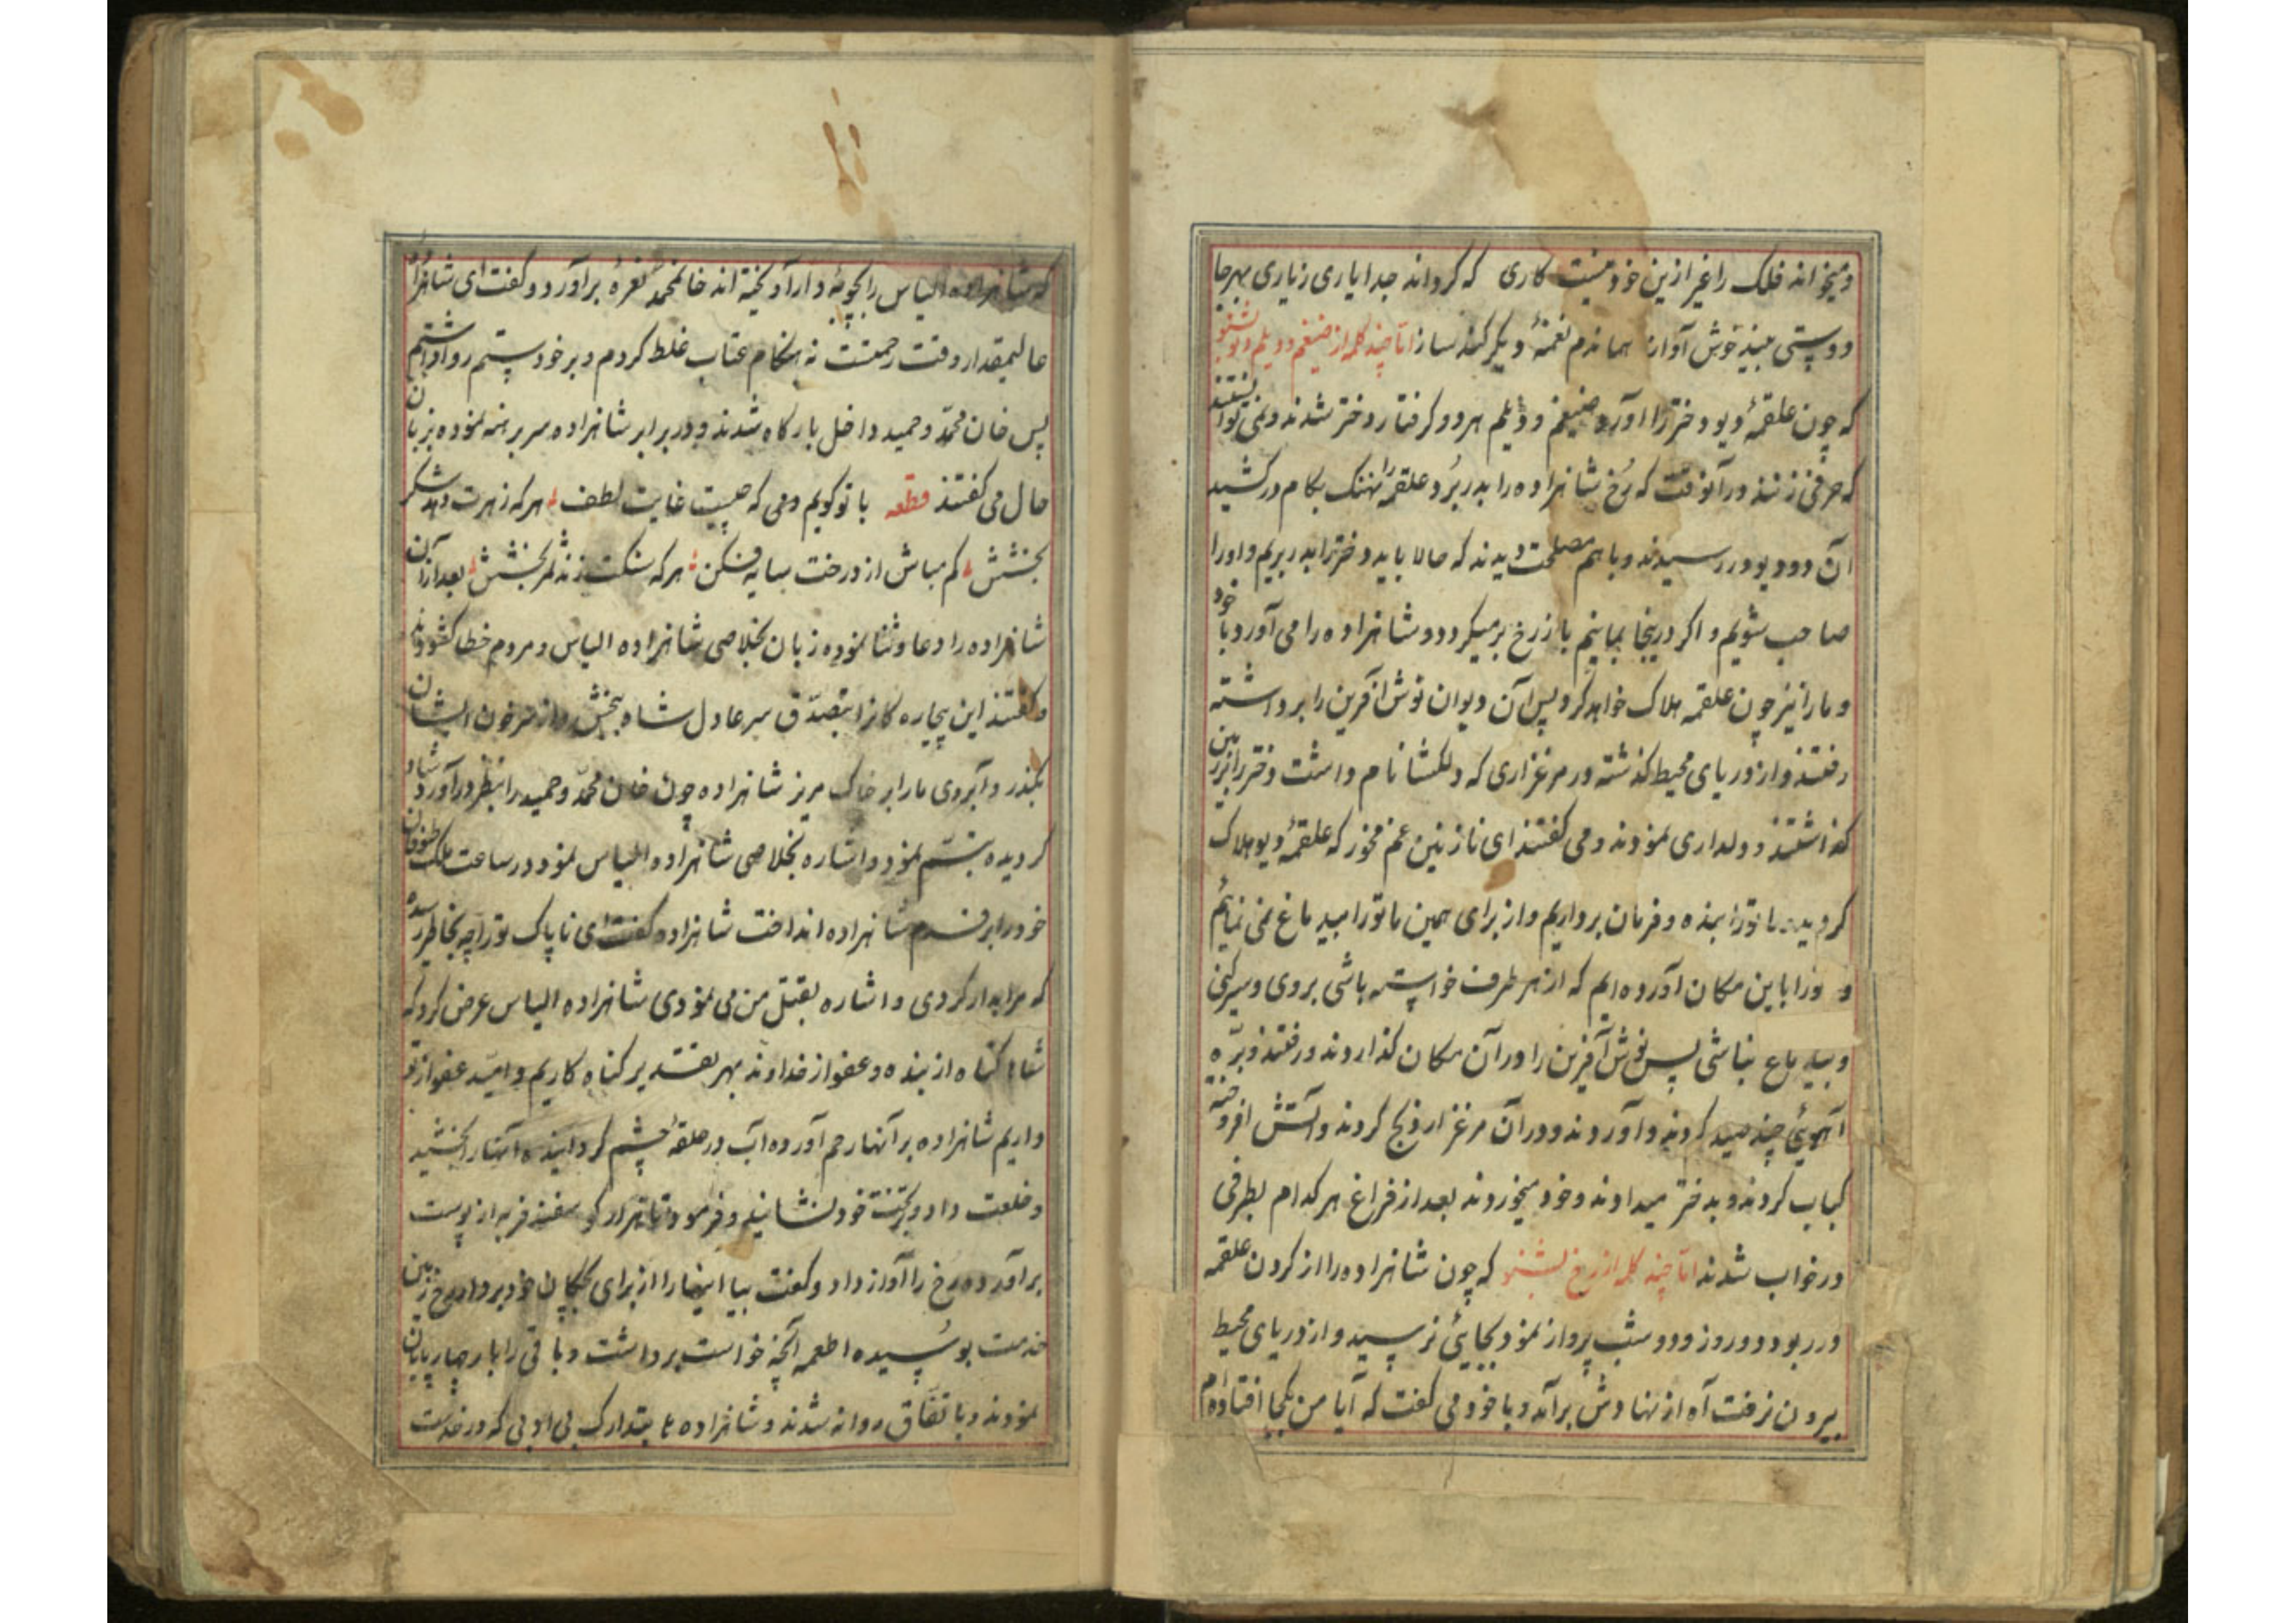 و میخواند فلک را غیر ازین خود نیست کاری که گرداند جدا یاری ز یاری بهر جا
دو دوستی بیند خوش آواز هماندم نغمهٔ دیگر کند ساز اما چند کلمه از ضیغم و دیلم دیو بشنو
که چون علقمهٔ دیو دختر را آورد ضیغم و دیلم هر دو گرفتار دختر شدند و نمی توانستند
که حرفی زنند در آنوقت که رخ شاهزاده را بدر برد و علقمه را نهنگ بکام در کشید
آن دو دیو در رسیدند و با هم مصلحت دیدند که حالا باید دختر را بدر بریم و او را
صاحب شویم و اگر درینجا بمانیم باز رخ برمیگردد و شاهزاده را می آورد با خود
و ما را نیز چون علقمه هلاک خواهد کرد پس آن دیوان نوش آفرین را برداشته
رفتند و از دریای محیط گذشته در مرغزاری که دلگشا نام داشت دختر را بزمین
گذاشتند و دلداری نمودند و می گفتند ای نازنین غم مخور که علقمهٔ دیو هلاک
گردید ما تو را بنده و فرمان برداریم و از برای همین ما تو را بید ماغ نمی نمائیم
و تو را باین مکان آورده ایم که از هر طرف خواسته باشی بروی و سیر کنی
و بید ماغ نباشی پس نوش آفرین را در آن مکان گذاردند و رفتند و بره
آهوئی چند صید کردند و آوردند و در آن مرغزار ذبح کردند و آتش افروخته
کباب کردند و بدختر میدادند و خود میخوردند بعد از فراغ هر کدام بطرفی
در خواب شدند اما چند کلمه از رخ بشنو که چون شاهزاده را از گردن علقمه
در ربود دو روز و دو شب پرواز نمود بجایی نرسید و از دریای محیط
بیرون نرفت آه از نهادش برآمد و با خود می گفت که آیا من بکجا افتاده ام
که شاهزاده الیاس را بچوبهٔ دار آویخته اند خانمحمد نعره برآورد و گفت ای شاهزاده
عالیمقدار وقت رحمتست نه هنگام عتاب غلط کردم و بر خود ستم روا داشتم
پس خان محمد و حمید داخل بارگاه شدند و در برابر شاهزاده سر برهنه نموده بزبان
حال می گفتند قطعه با تو گویم که چیست غایت لطف هر که زهرت دهد شکر
بخشش کم مباش از درخت سایه فکن هر که سنگت زند ثمر بخشش بعد از آن
شاهزاده را دعا و ثنا نموده زبان بخلاصی شاهزاده الیاس و مردم خطا گشودند
و گفتند این بیچاره گانرا بتصدق سر عادل شاه ببخش و از سر خون ایشان
بگذر و آبروی ما را بر خاک مریز شاهزاده چون خان محمد و حمید را بنظر درآورد شاد
گردیده تبسم نمود و اشاره بخلاصی شاهزاده الیاس نمود در ساعت ملک طنوفان
خود را بر قدم شاهزاده انداخت شاهزاده گفت ای ناپاک تو را چه بخاطر رسیده
که مرا بدار کردی و اشاره بقتل من می نمودی شاهزاده الیاس عرض کرد که
شاها گناه از بنده و عفو از خداوند بهر تقدیر گناه کاریم و امید عفو از تو
داریم شاهزاده بر آنها رحم آورده آب در حلقهٔ چشم گردانیده آنها را بخشید
و خلعت داد و بر تخت خود نشانید و فرمود تا هزار گوسفند فربه از پوست
برآورده رخ را آواز داد و گفت بیا اینها را از برای بچگان خود بردار رخ زمین
خدمت بوسیده اطعمه آنچه خواست برداشت و باقی را بار چهارپایان
نمودند و باتفاق روانه شدند و شاهزاده بتدارک بی ادبی که در خدمت